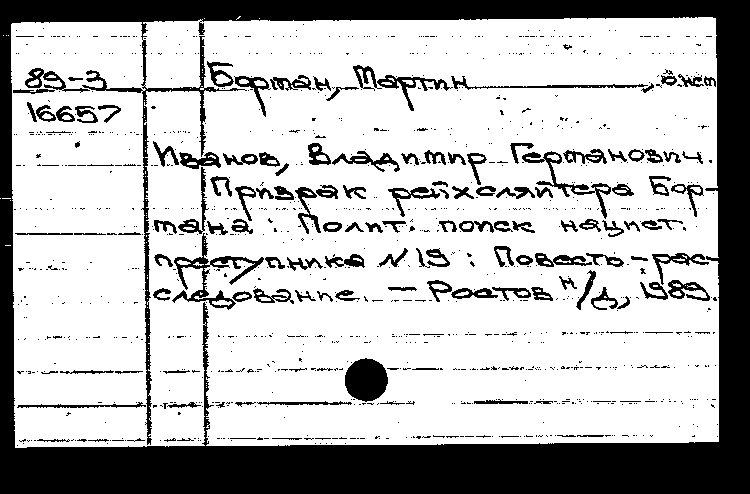 89-3 Борман, Мартин, о нем
16657
Иванов, Владимир Германович.
Призрак рейхсляйтера Бор-
мана : Полит. поиск нацист.
преступника N 19 : Повесть-рас-
следование. — Ростов н/Д, 1989.